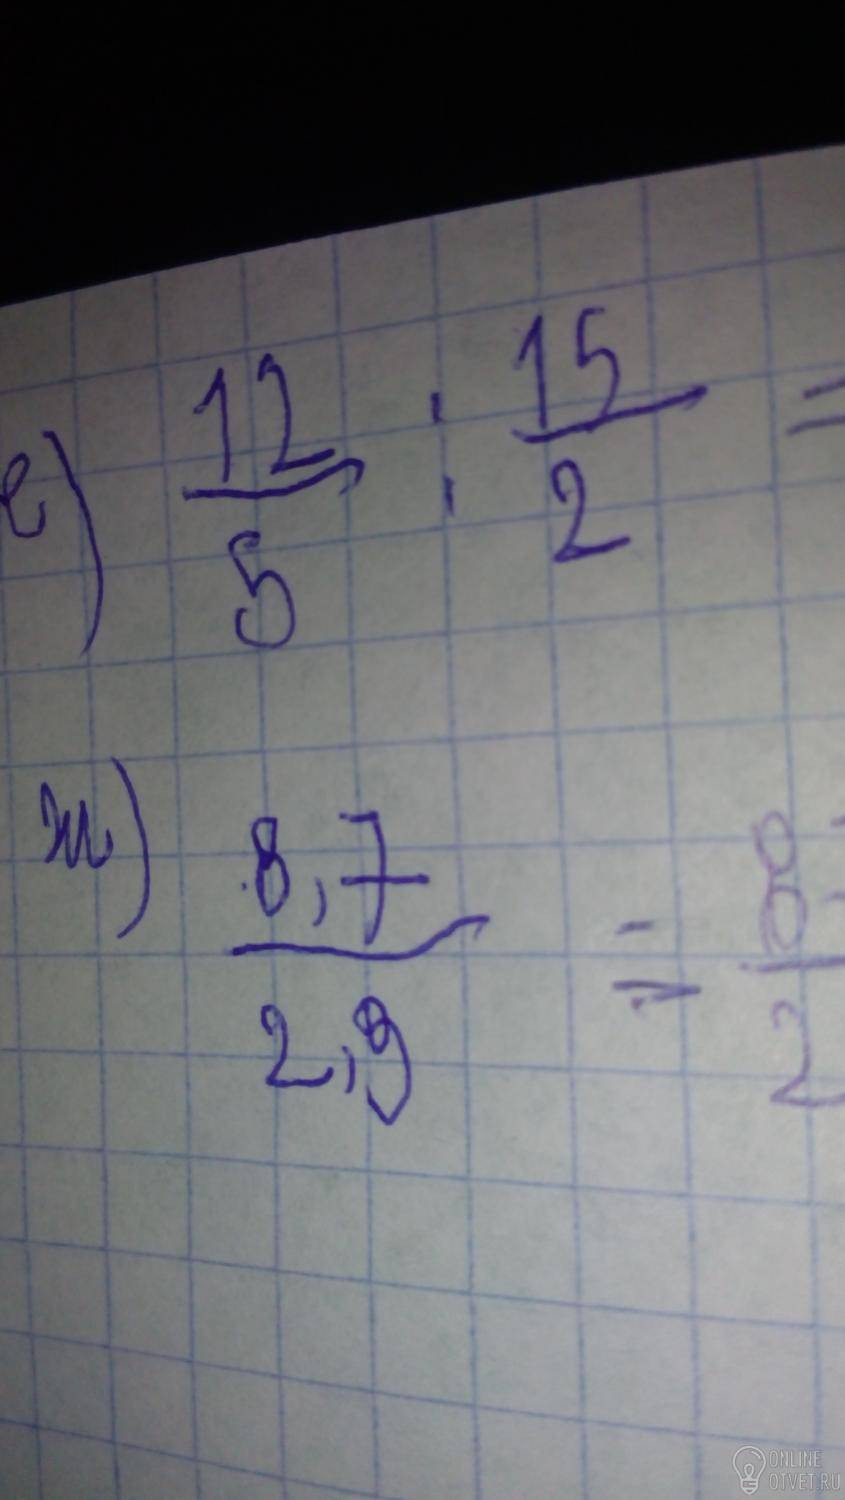 е) 12/5 : 15/2 =
ж) 8,7/2,9 = 8,/2
ONLINE
OTVET.RU